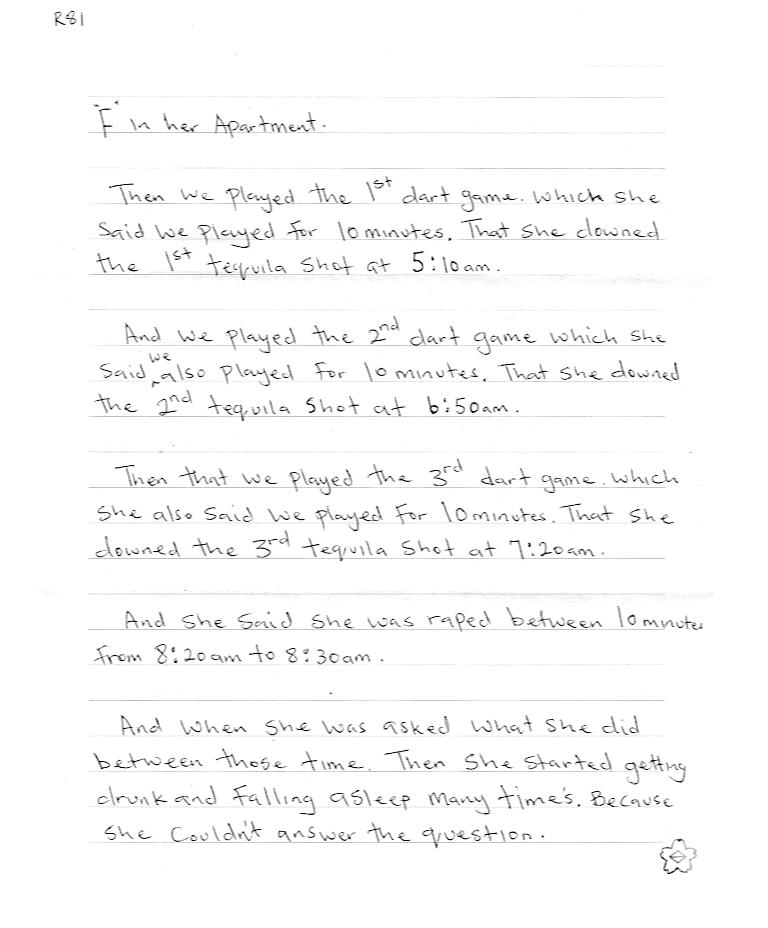 R81
"F" in her Apartment.
Then we played the 1st dart game. Which she
Said we played for 10 minutes. That she downed
the 1st tequila shot at 5:10am.
And we played the 2nd dart game which she
Said we also played for 10 minutes. That she downed
the 2nd tequila shot at 6:50am.
Then that we played the 3rd dart game. Which
she also said we played for 10 minutes. That she
downed the 3rd tequila shot at 7:20am.
And she said she was raped between 10 minutes
from 8:20am to 8:30am.
And when she was asked what she did
between those time. Then she started getting
drunk and falling asleep many time's. Because
she couldn't answer the question.